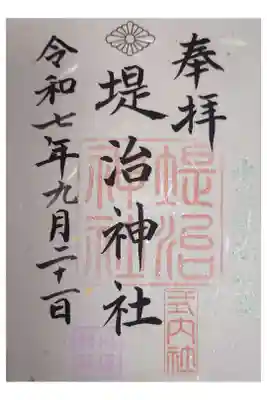 奉拝
堤治神社
令和七年九月二十一日
堤治
神社
式内社